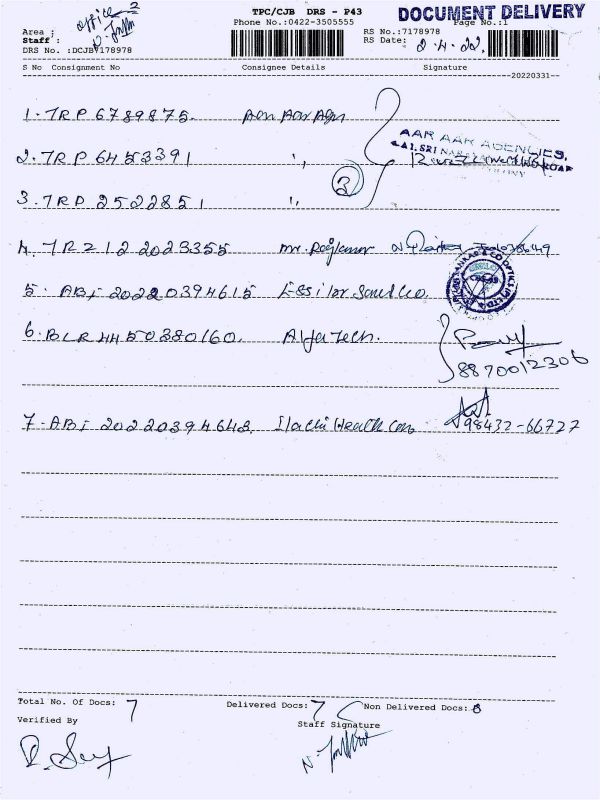 TPC/CJB DRS - P43
DOCUMENT DELIVERY
Office 2
Area :
Phone No.:0422-3505555
Page No.:1
Staff :
RS No.:7178978
DRS No. :DCJB7178978
RS Date: 2.4.22.
S No Consignment No Consignee Details Signature
20220331
1. TRP 6789875. Aar Aar Agn
AAR AAR AGENCIES,
2. TRP 6453391 "
3
3. TRP 2522851 "
4. TRZ 122023355 Mr. Rajkumar
5. ABJ 20220394615 Essilor Sons & Co.
6. BLR 4450380160. Alfa Tech.
8870012306
7. ABJ 20220394648. Health Care
98432-66727
Total No. Of Docs: 7 Delivered Docs: 7 Non Delivered Docs:
Verified By
Staff Signature